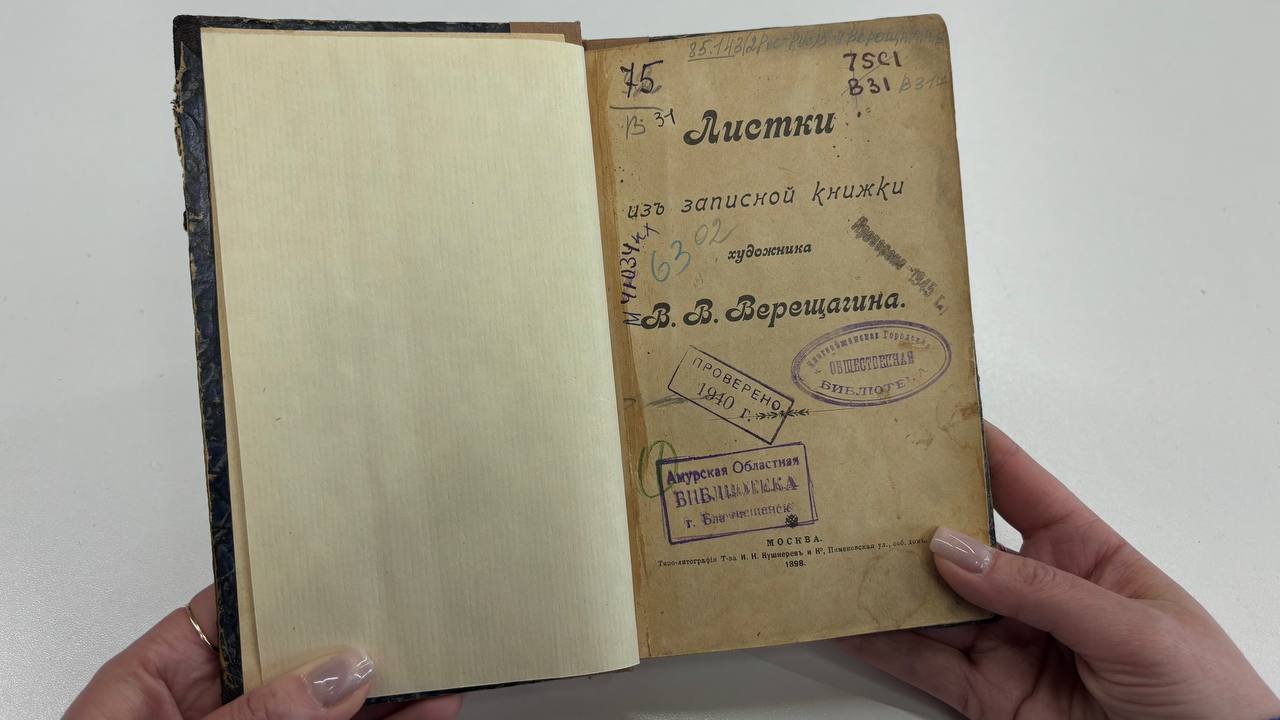 85.143(2
75
В 31
75С1
В31
В31
Листки
изъ записной книжки
художника
В. В. Верещагина.
63 02
Проверено 1945 г.
Благовѣщенская Городская
ОБЩЕСТВЕННАЯ
БИБЛІОТЕКА
ПРОВЕРЕНО
1940 г.
Амурская Областная
БИБЛИОТЕКА
г. Благовещенск
МОСКВА.
Типо-литографія Т-ва И. Н. Кушнеревъ и Кº, Пименовская ул., соб. домъ.
1898.